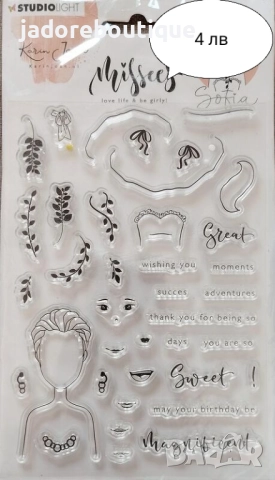 STUDIOLIGHT
4 лв
jadoreboutique.eu
Karin Joan
Missees
Sofia
love life & be girly!
Great
wishing you moments
succes adventures
thank you for being so
days you are so
Sweet !
may your birthday be
Magnificent
bazar